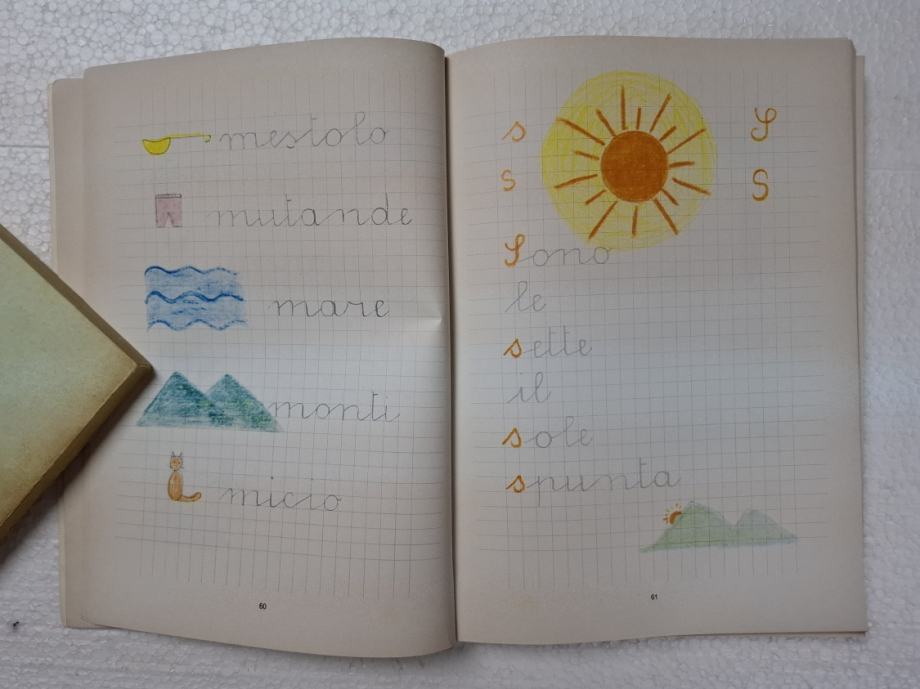 mestolo
mutande
mare
monti
micio
60
s S
s S
Sono
le
sette
il
sole
spunta
61